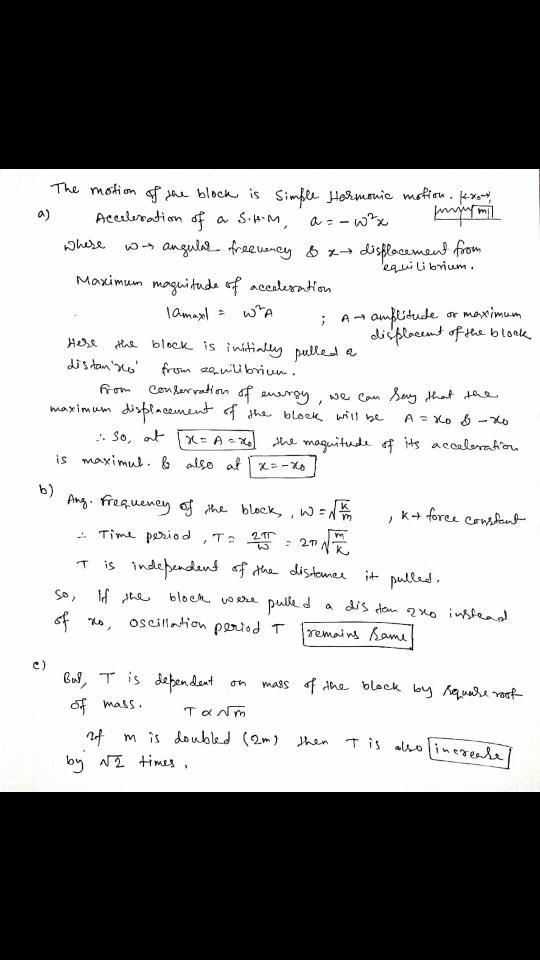 The motion of the block is Simple Harmonic motion. k x0→
m
a) Acceleration of a S.H.M, a = -ω²x
Where ω → angular frequency & x → displacement from
equilibrium.
Maximum magnitude of acceleration
|amax| = ω²A ; A → amplitude or maximum
displacemt of the block
Here the block is initially pulled a
distan 'x0' from equilibrium.
From conservation of energy, we can say that the
maximum displacement of the block will be A = x0 & -x0
∴ So, at x = A = x0 the magnitude of its acceleration
is maximul. & also at x = -x0
b) Ang. frequency of the block, ω = √(k/m) , K → force constant
∴ Time period, T = 2π/ω = 2π√(m/k)
T is independent of the distance it pulled.
So, If the block were pulled a distan 2x0 instead
of x0, oscillation period T remains same
c) But, T is dependent on mass of the block by square root
of mass. T ∝ √m
If m is doubled (2m) then T is also increase
by √2 times.